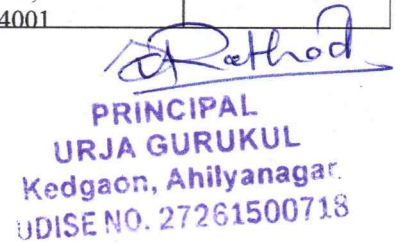 4001
Rathod
PRINCIPAL
URJA GURUKUL
Kedgaon, Ahilyanagar.
UDISE NO. 27261500718